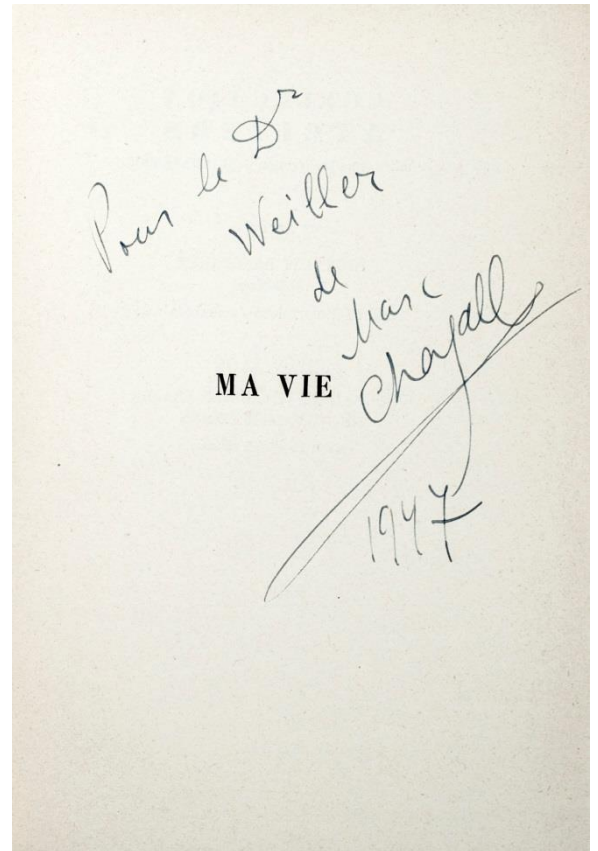 Pour le Dr
Weiller
de
Marc
Chagall
MA VIE
1947